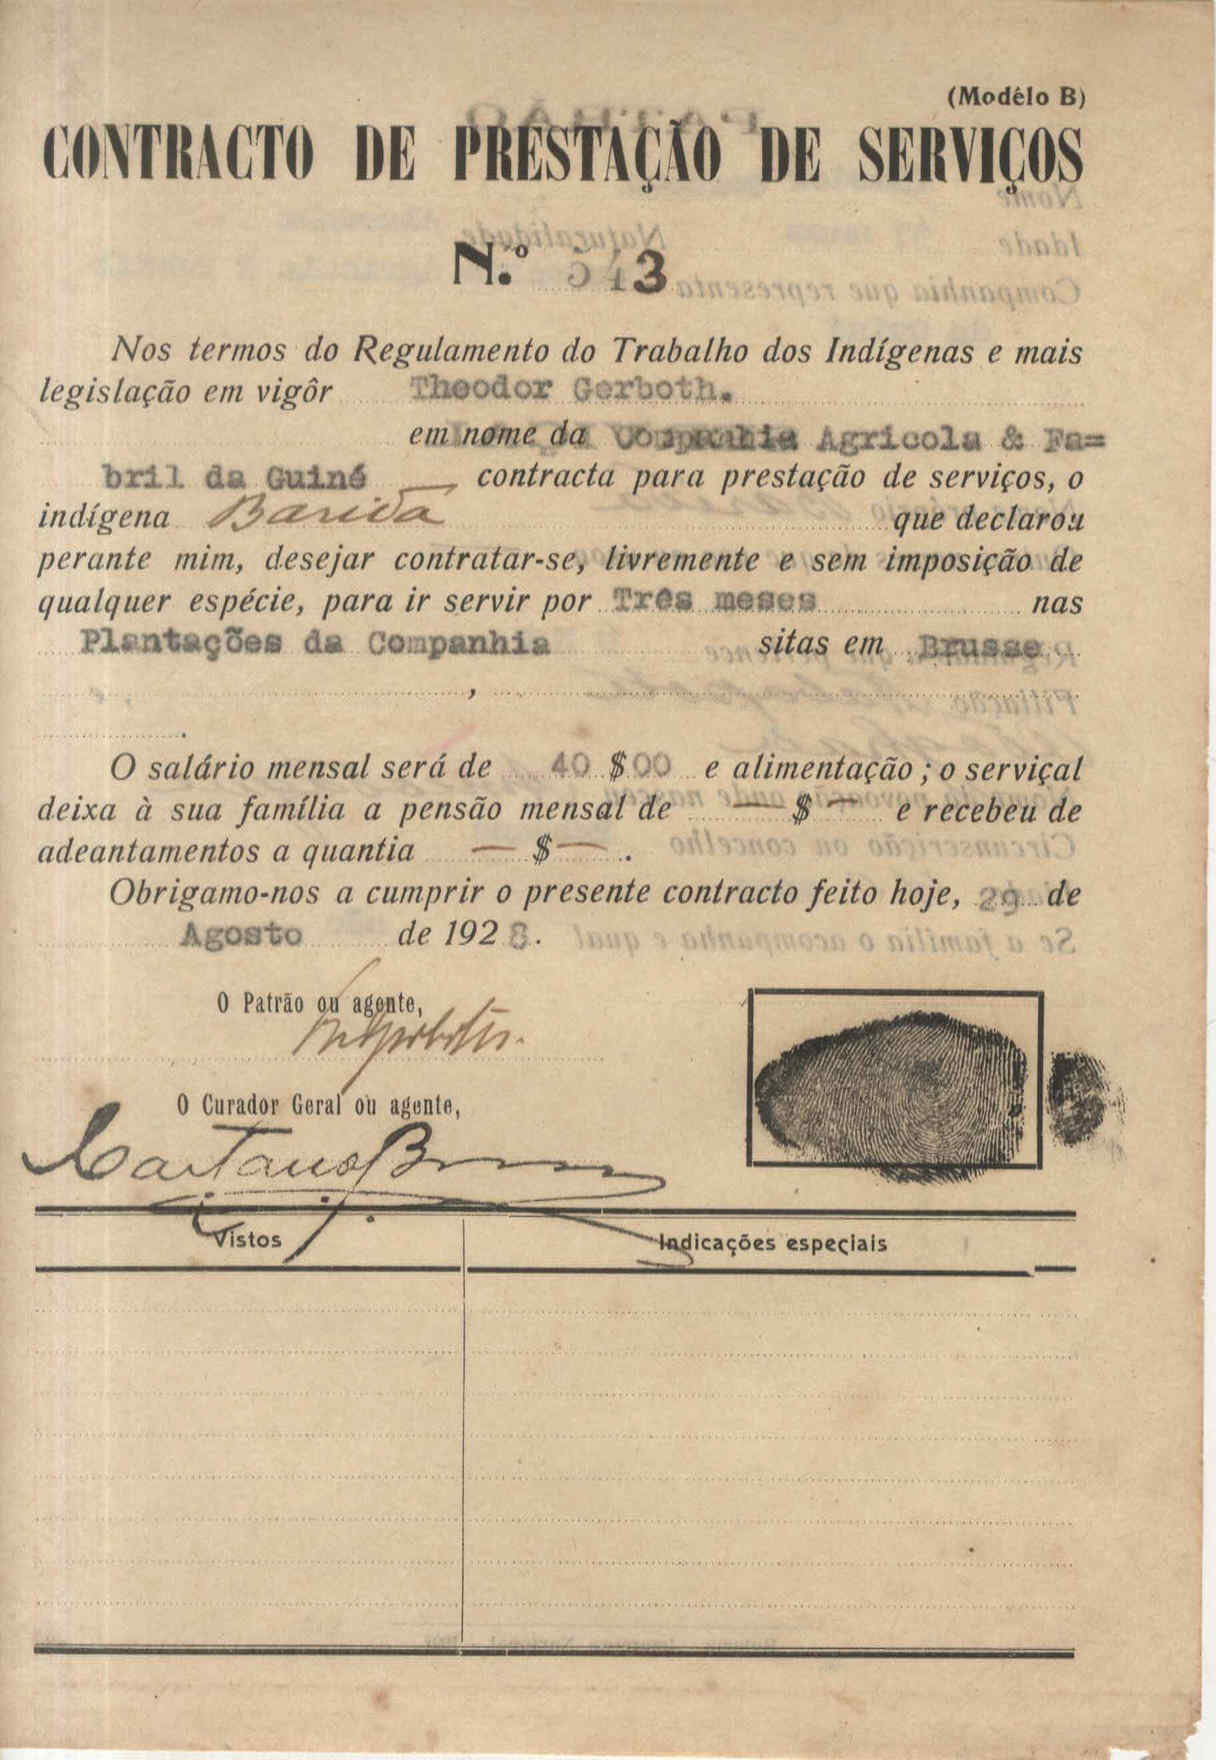 (Modêlo B)
CONTRACTO DE PRESTAÇÃO DE SERVIÇOS
N.º 543
Nos termos do Regulamento do Trabalho dos Indígenas e mais
legislação em vigôr Theodor Gerboth.
em nome da Companhia Agricola & Fa=
bril da Guiné contracta para prestação de serviços, o
indígena que declarou
perante mim, desejar contratar-se, livremente e sem imposição de
qualquer espécie, para ir servir por Três meses nas
Plantações da Companhia sitas em Brusse
,
.
O salário mensal será de 40 $ 00 e alimentação; o serviçal
deixa à sua família a pensão mensal de — $ — e recebeu de
adeantamentos a quantia — $ — .
Obrigamo-nos a cumprir o presente contracto feito hoje, 29 de
Agosto de 1928.
O Patrão ou agente,
O Curador Geral ou agente,
Caetano
Vistos Indicações especiais